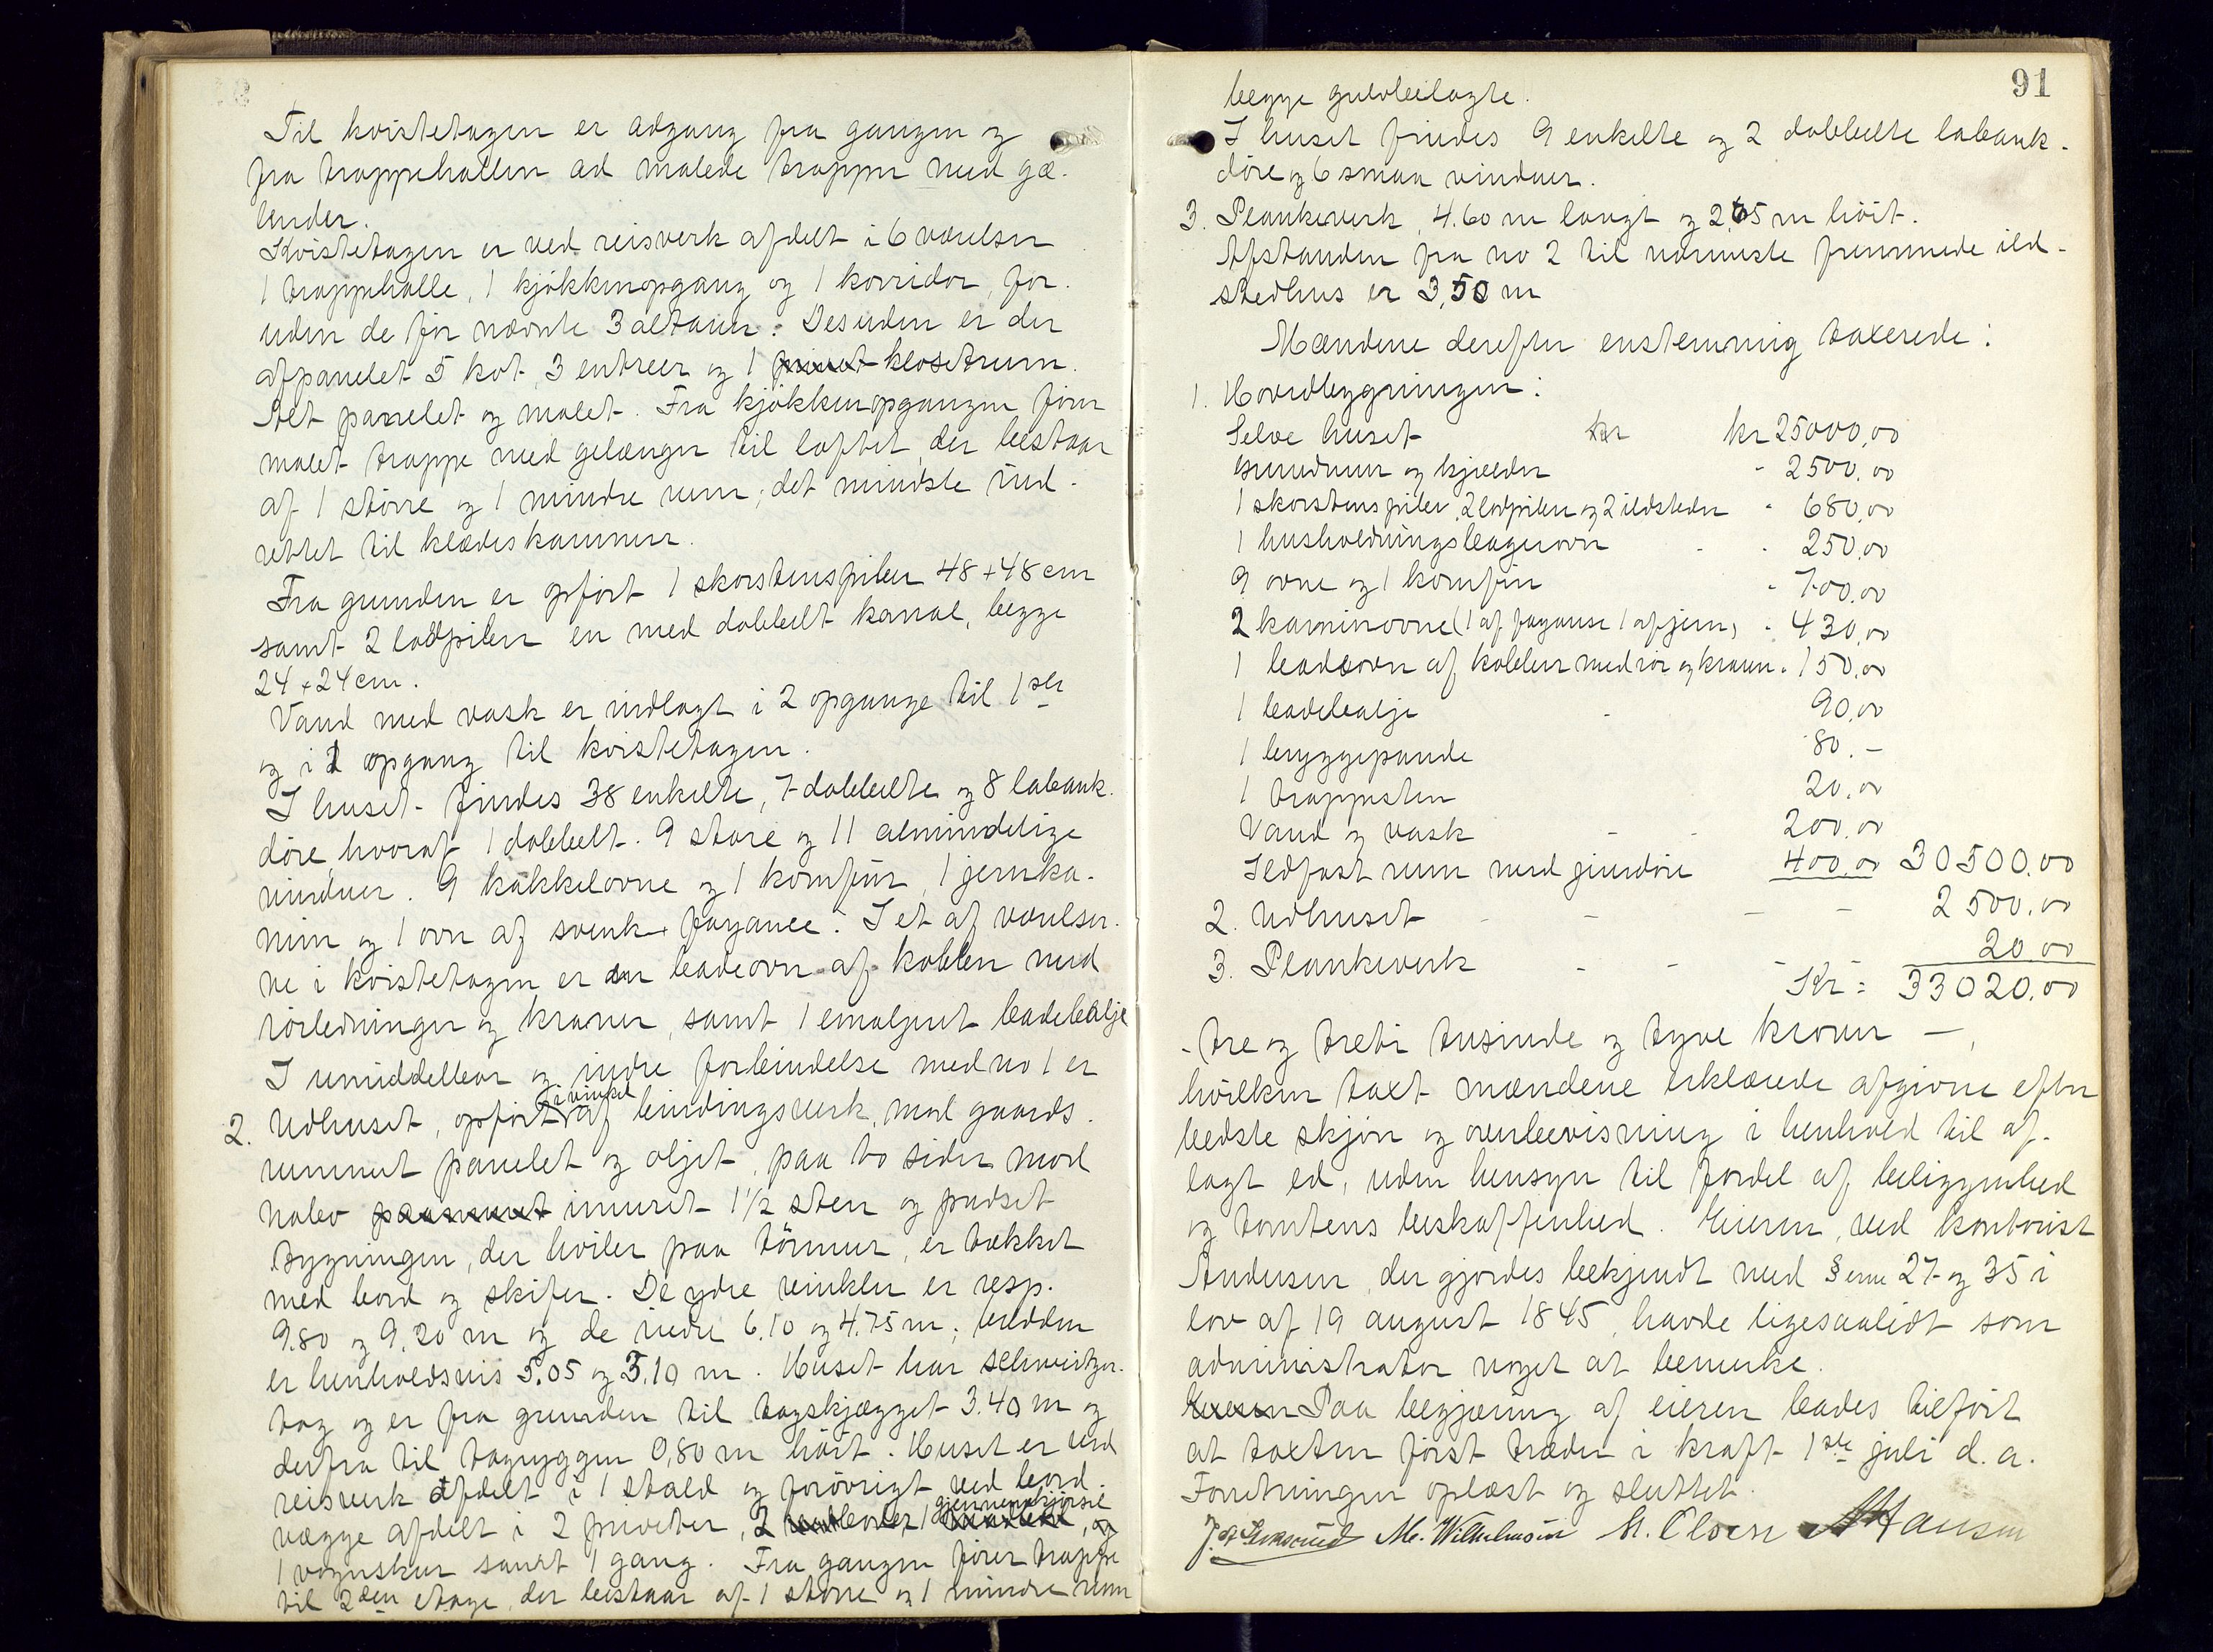 Til kvistetagen er adgang fra gangen og
fra trappehallen ad malede trapper med gæ-
lender.
Kvistetagen er ved reisverk afdelt i 6 værelser
1 trappehalle, 1 kjøkkenopgang og 1 korridor, for-
uden de før nævnte 3 altaner. Desuden er der
afpanelet 5 kot, 3 entreer og 1 privat klosetrum.
Alt panelet og malet. Fra kjøkkenopgangen fører
malet trappe med gelænger til loftet, der bestaar
af 1 større og 1 mindre rum; det mindste ind-
rettet til klædeskammer.
Fra grunden er opført 1 skorstenspiber 48+48 cm
samt 2 lodpiber en med dobbelt kanal, begge
24+24 cm.
Vand med vask er indlagt i 2 opgange til 1ste
og i 1 opgang til kvistetagen.
I huset findes 38 enkelte, 7 dobbelte og 8 labank-
døre, hvoraf 1 dobbelt. 9 store og 11 almindelige
vinduer. 9 kakkelovne og 1 komfur, 1 jernka-
min og 1 ovn af svensk fayance. I et af værelser-
ne i kvistetagen er en badeovn af kobber med
rørledninger og kraner, samt 1 emaljeret badebalje
I umiddelbar og indre forbindelse med no 1 er
2. Udhuset, opført i vinkel af bindingsverk, mod gaards-
rummet panelet og oljet, paa to sider mod
nabo paamuret inmuret 1½ sten og pudset
Bygningen, der hviler paa tørmur, er tækket
med bord og skifer. De ydre vinkler er resp.
9.80 og 9.20 m og de indre 6.10 og 4.75 m; bredden
er henholdsvis 5.05 og 5.10 m. Huset har schweitzer-
tag og er fra grunden til tagskjægget 3.40 m og
derfra til tagryggen 0,80 m høit. Huset er ved
reisverk afdelt i 1 stald og forøvrigt ved bord-
vægge afdelt i 2 priveter, 2 vedboder, 1 gjennemkjørsel, og
1 vognskur samt 1 gang. Fra gangen fører trappe
til 2den etage, der bestaar af 1 større og 1 mindre rum
91
begge gulvbelagte.
I huset findes 9 enkelte og 2 dobbelte labank-
døre og 6 smaa vinduer.
3. Plankeverk, 4.60 m langt og 2,65 m høit.
Afstanden fra no 2 til nærmeste fremmede ild-
stedhus er 3,50 m
Mændene derefter enstemmig taxerede:
1. Hovedbygningen:
Selve huset kr kr 25000,00
Grundmur og kjælder - 2500.00
1 skorstenspibe, 2 lodpiber og 2 ildsteder - 680,00
1 husholdningsbagerovn - - 250,00
9 ovne og 1 komfur - 700.00
2 kaminovne (1 af fayance 1 af jern) - 430,00
1 badeovn af kobber med rør og kraner - 150,00
1 badebalje - 90,00
1 bryggepande 80.-
1 trappesten 20,00
Vand og vask - - 200,00
Ildfast rum med jerndøre 400,00 30500.00
2. Udhuset - - - - 2500.00
3. Plankeverk - - - - 20.00
Kr = 33020.00
- tre og tretti tusinde og tyve kroner -,
hvilken taxt mændene erklærede afgiven efter
bedste skjøn og overbevisning i henhold til af-
lagt ed, uden hensyn til fordel af beliggenhed
og tomtens beskaffenhed. Eieren, ved kontorist
Andersen, der gjordes bekjendt med §erne 27 og 35 i
lov af 19 august 1845, havde ligesaalidt som
administrator noget at bemerke.
Paa begjæring af eieren bades tilført
at taxten først træder i kraft 1ste juli d.a.
Forretningen oplæst og sluttet.
M. Wilhelmsen H. Olsen Hansen